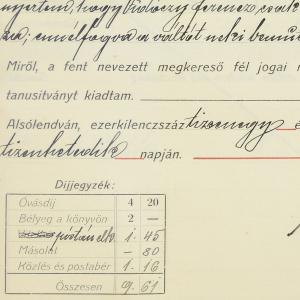 nyertem, hogy Kudoczy Ferencz csak
za; ennélfogva a váltót neki bemu
Miről, a fent nevezett megkereső fél jogai
tanusitványt kiadtam.
Alsólendván, ezerkilenczszáz tizenegy é
tizenhetedik napján.
Dijjegyzék:
Óvásdij 4 20
Bélyeg a könyvön 2 —
postán elk. 1 · 45
Másolat — 80
Közlés és postabér 1 - 16
Összesen 9. 61